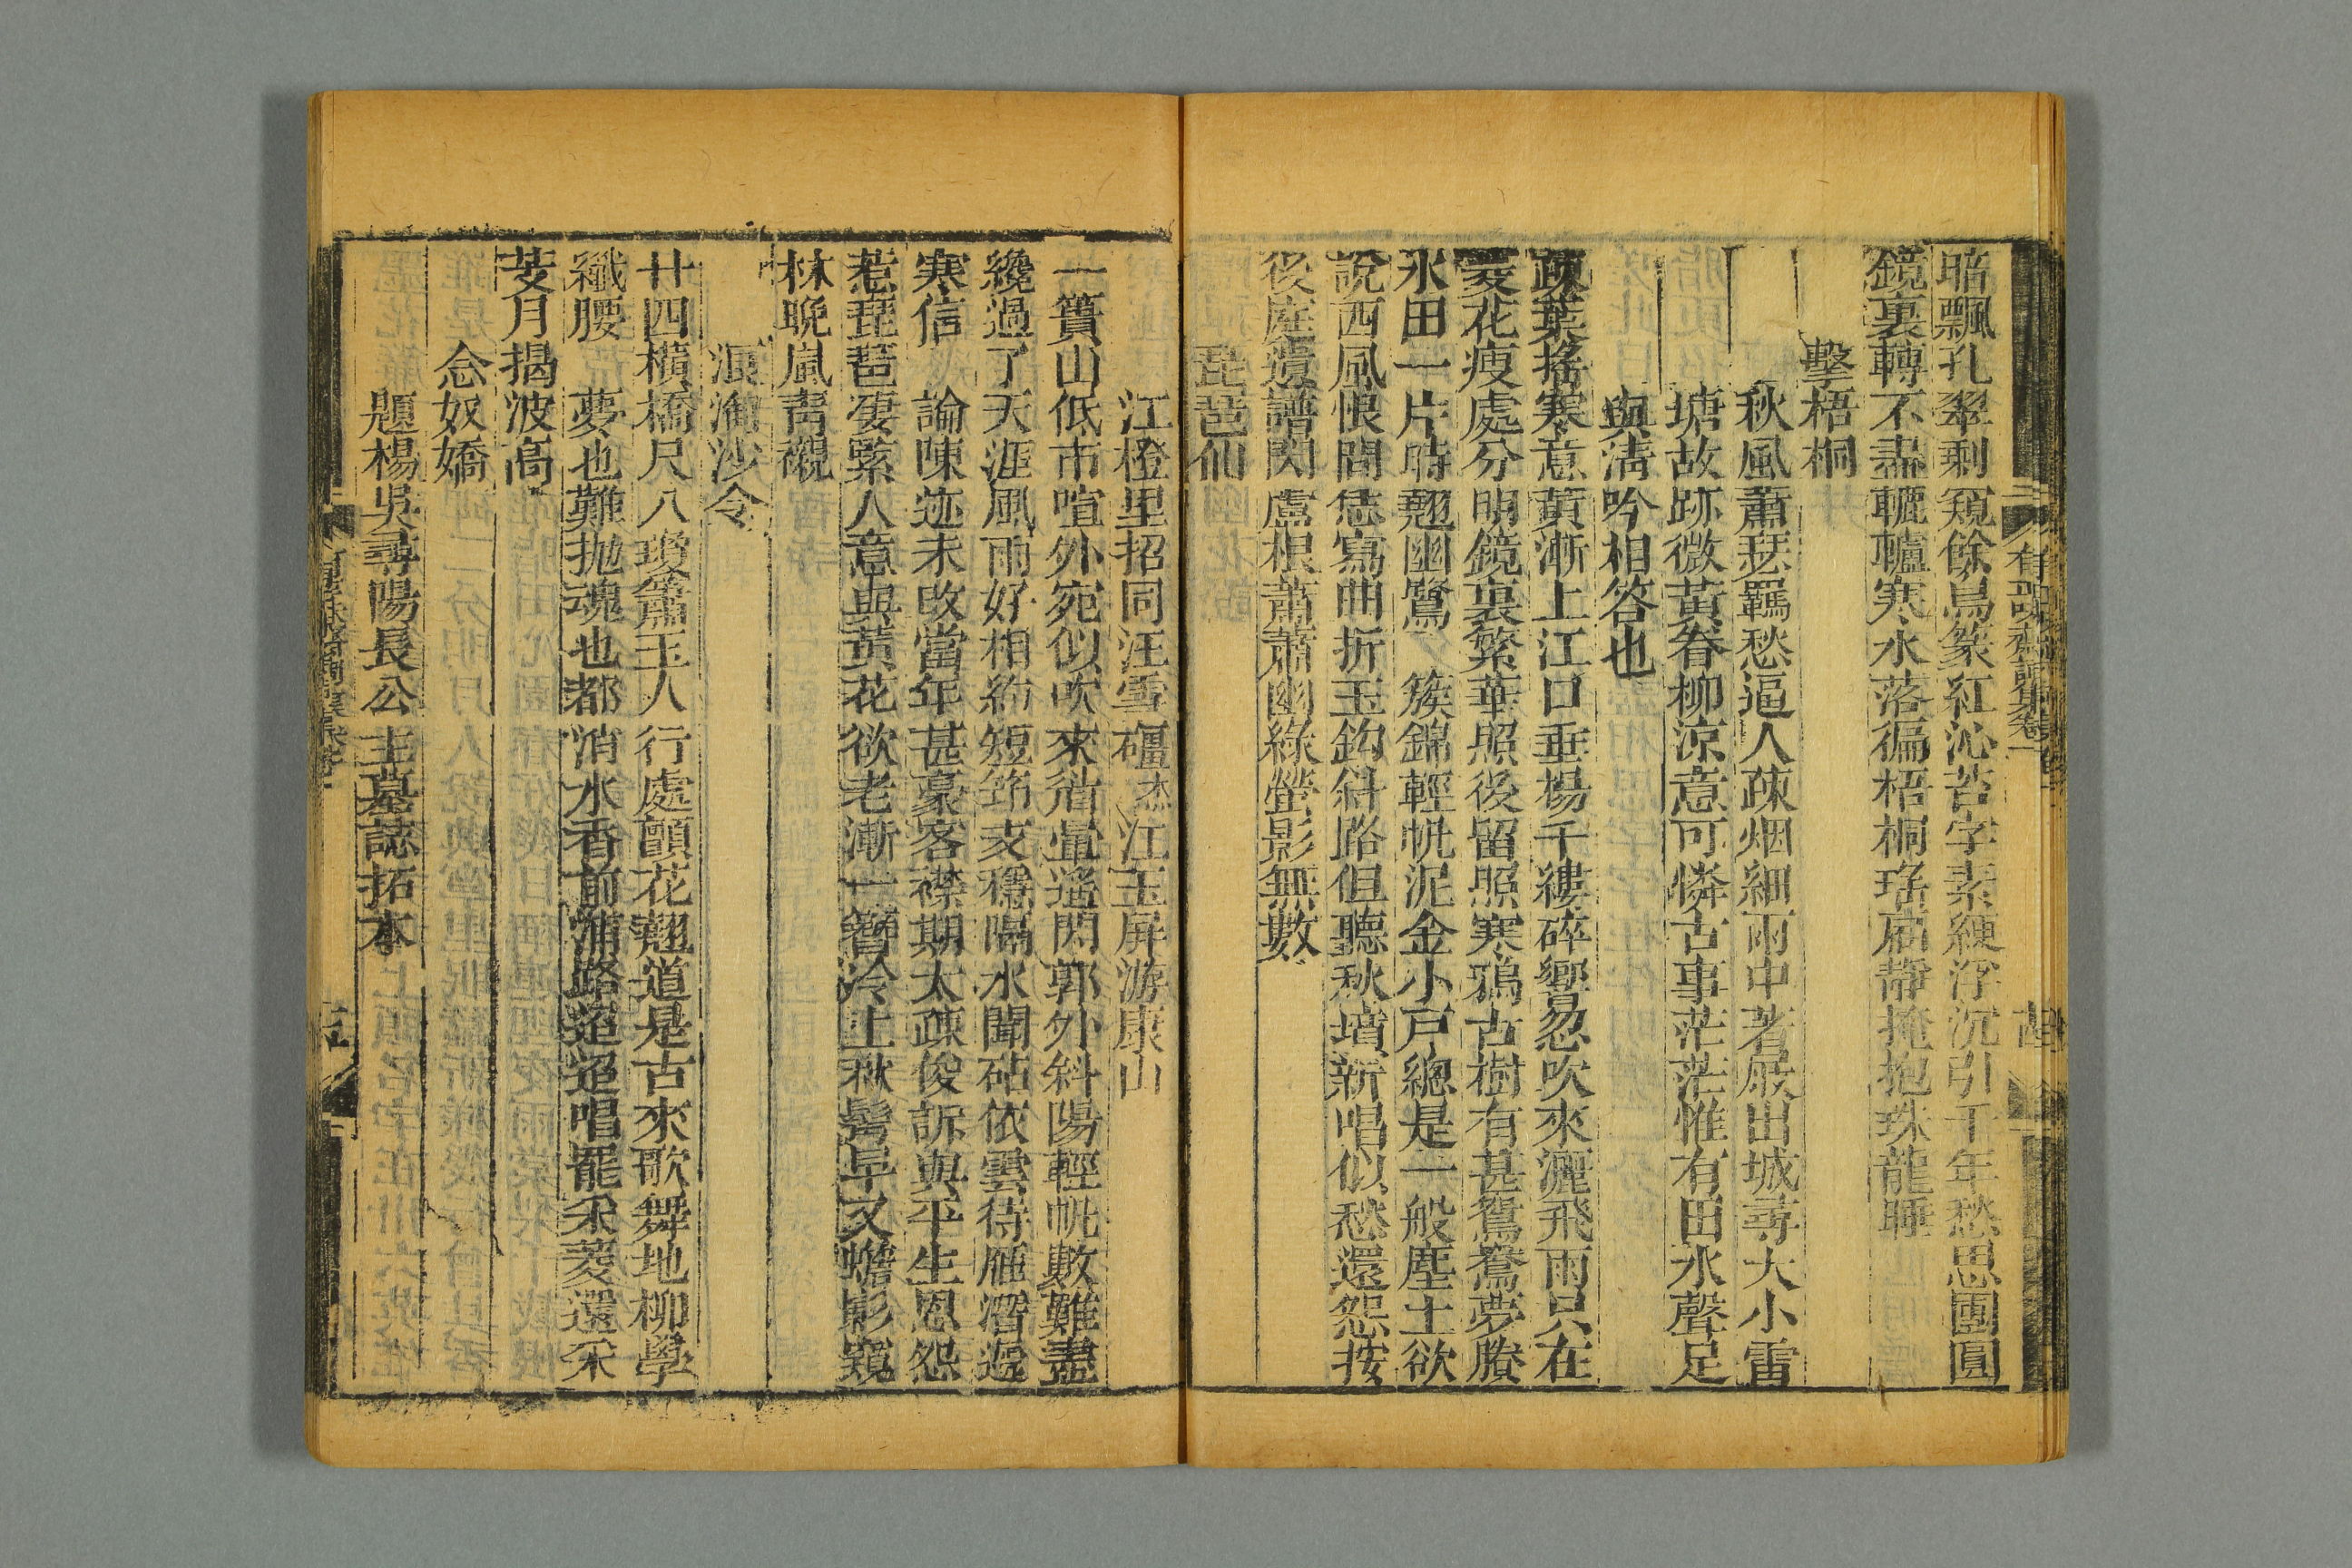 暗飄孔翠剩窺餘鳥篆紅沁苔字素綆浮沉引千年愁思團圓
鏡裏轉不盡轆轤寒水落徧梧桐瑤扃靜掩抱珠龍睡
擊梧桐
秋風蕭瑟羈愁逼人疎烟細雨中著屐出城尋大小雷
塘故跡微黃眷柳涼意可憐古事茫茫惟有田水聲足
與淸吟相答也
疎葉搖寒意黃漸上江口垂楊千縷碎響忽吹來灑飛雨只在
菱花瘦處分明鏡裏繁華照後留照寒鴉古樹有甚鴛鴦夢賸
水田一片時翹幽鷺　簇錦輕帆泥金小戸總是一般塵土欲
說西風恨閒恁寫曲折玉鈎斜路但聽秋墳新唱似愁還怨按
後庭遺譜閃蘆根蕭蕭幽綠螢影無數
琵琶仙
江橙里招同汪雪礓杰江玉屛游康山
一簣山低市喧外宛似吹來㳙暈遙閃郭外斜陽輕帆數難盡
纔過了天涯風雨好相約短筇支穩隔水聞砧依雲待雁潛遞
寒信　論陳迹未改當年甚豪客襟期太疎俊訴與平生恩怨
惹琵琶淒緊人意與黃花欲老漸一簪冷上秋髩早又蟾影窺
林晩嵐靑襯
浪淘沙令
廿四橫橋尺八瓊簫玉人行處顫花翹道是古來歌舞地柳學
纖腰　夢也難拋魂也都消水香前浦路迢迢唱罷采菱還采
芰月揭波高
念奴嬌
題楊吳尋陽長公主墓誌拓本